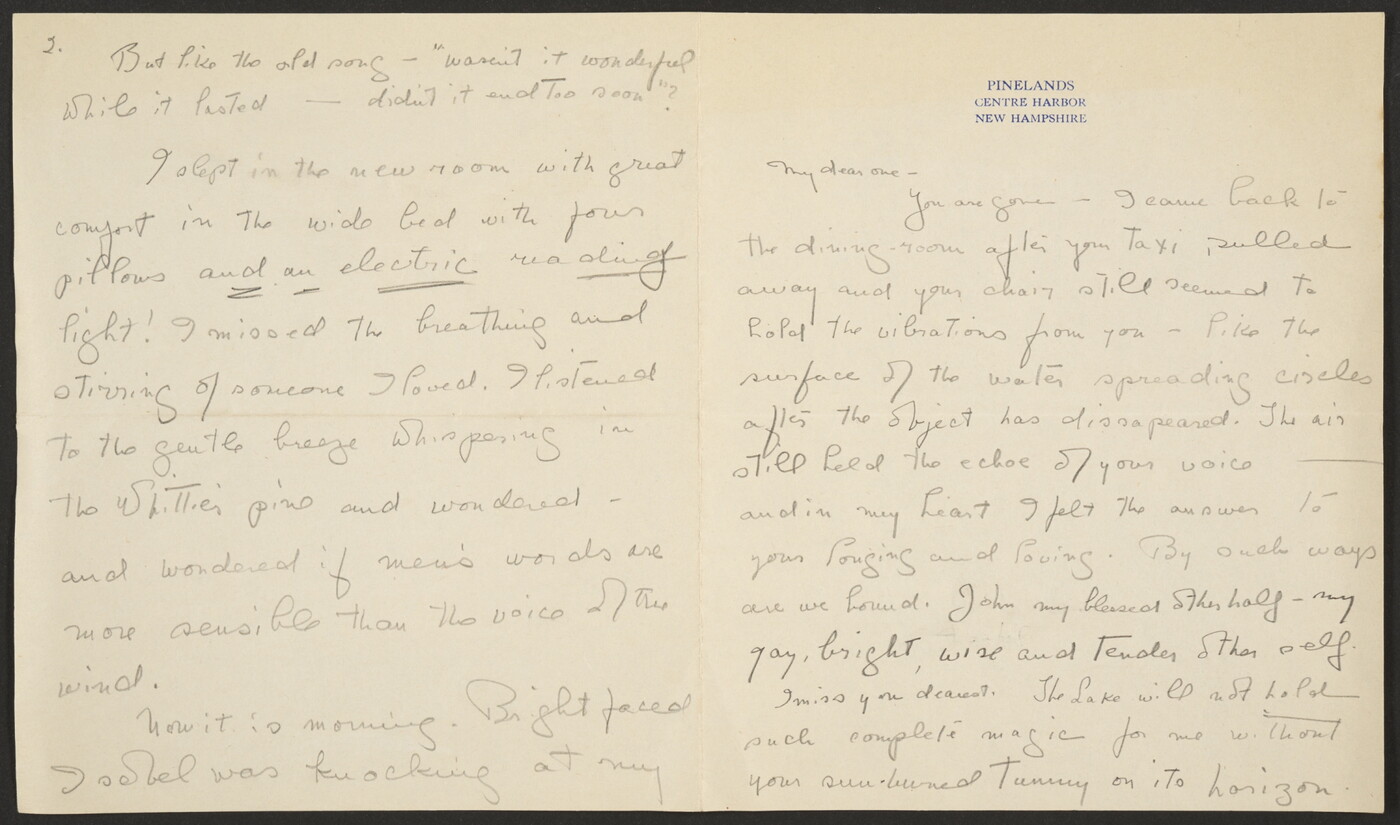 PINELANDS
CENTRE HARBOR
NEW HAMPSHIRE
My dear one -
You are gone - I came back to
the dining-room after your taxi pulled
away and your chair still seemed to
hold the vibrations from you - like the
surface of the water spreading circles
after the object has dissapeared. The air
still held the echoe of your voice —
and in my heart I felt the answer to
your longing and loving. By such ways
are we bound. John my blessed other half - my
gay, bright, wise and tender other self.
I miss you dearest. The Lake will not hold
such complete magic for me without
your sun-burned tummy on its horizon.
2.
But like the old song - "wasn't it wonderful
while it lasted — didn't it end too soon"?
I slept in the new room with great
comfort in the wide bed with four
pillows and an electric reading
light! I missed the breathing and
stirring of someone I loved. I listened
to the gentle breeze whispering in
the Whittier pine and wondered -
and wondered if men's words are
more sensible than the voice of the
wind.
Now it is morning. Bright faced
Isobel was knocking at my